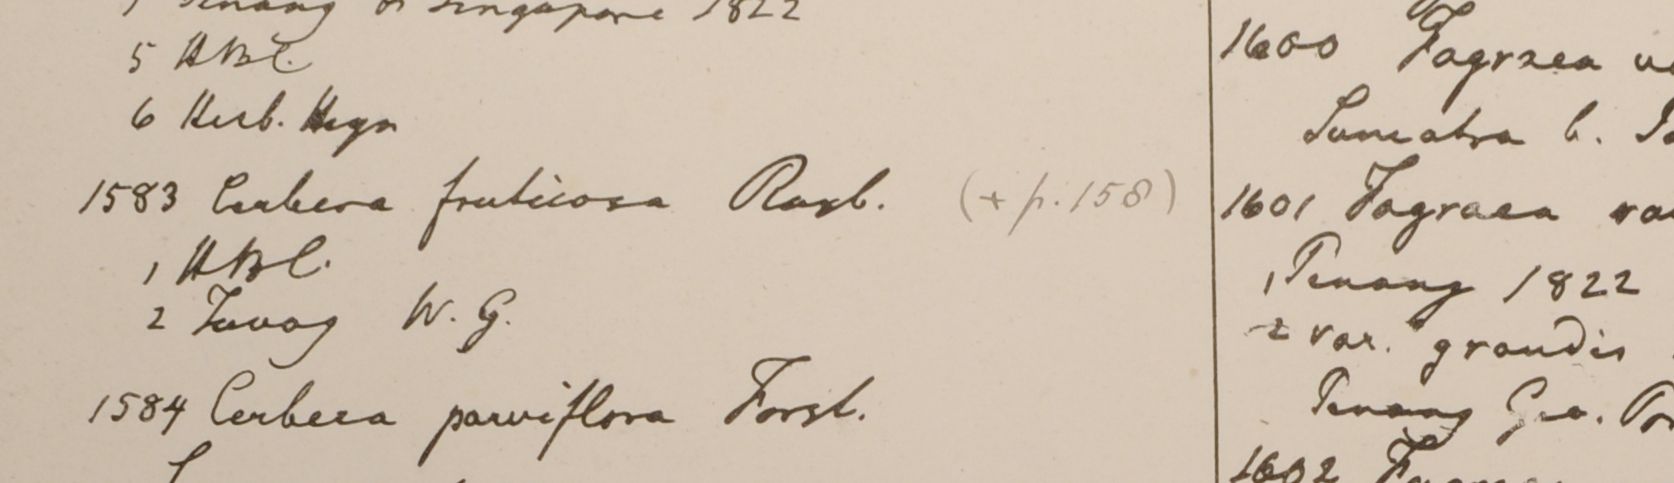 Penang & Singapore 1822
5 HBC.
6 Herb. Heyn
1583 Cerbera fruticosa Roxb. (+ p. 158)
1 HBC.
2 Tavoy W. G.
1584 Cerbera parviflora Forst.
1600 Fagraea
Sumatra
1601 Fagraea
1 Penang 1822
2 var. grandis
Penang Geo.
1602